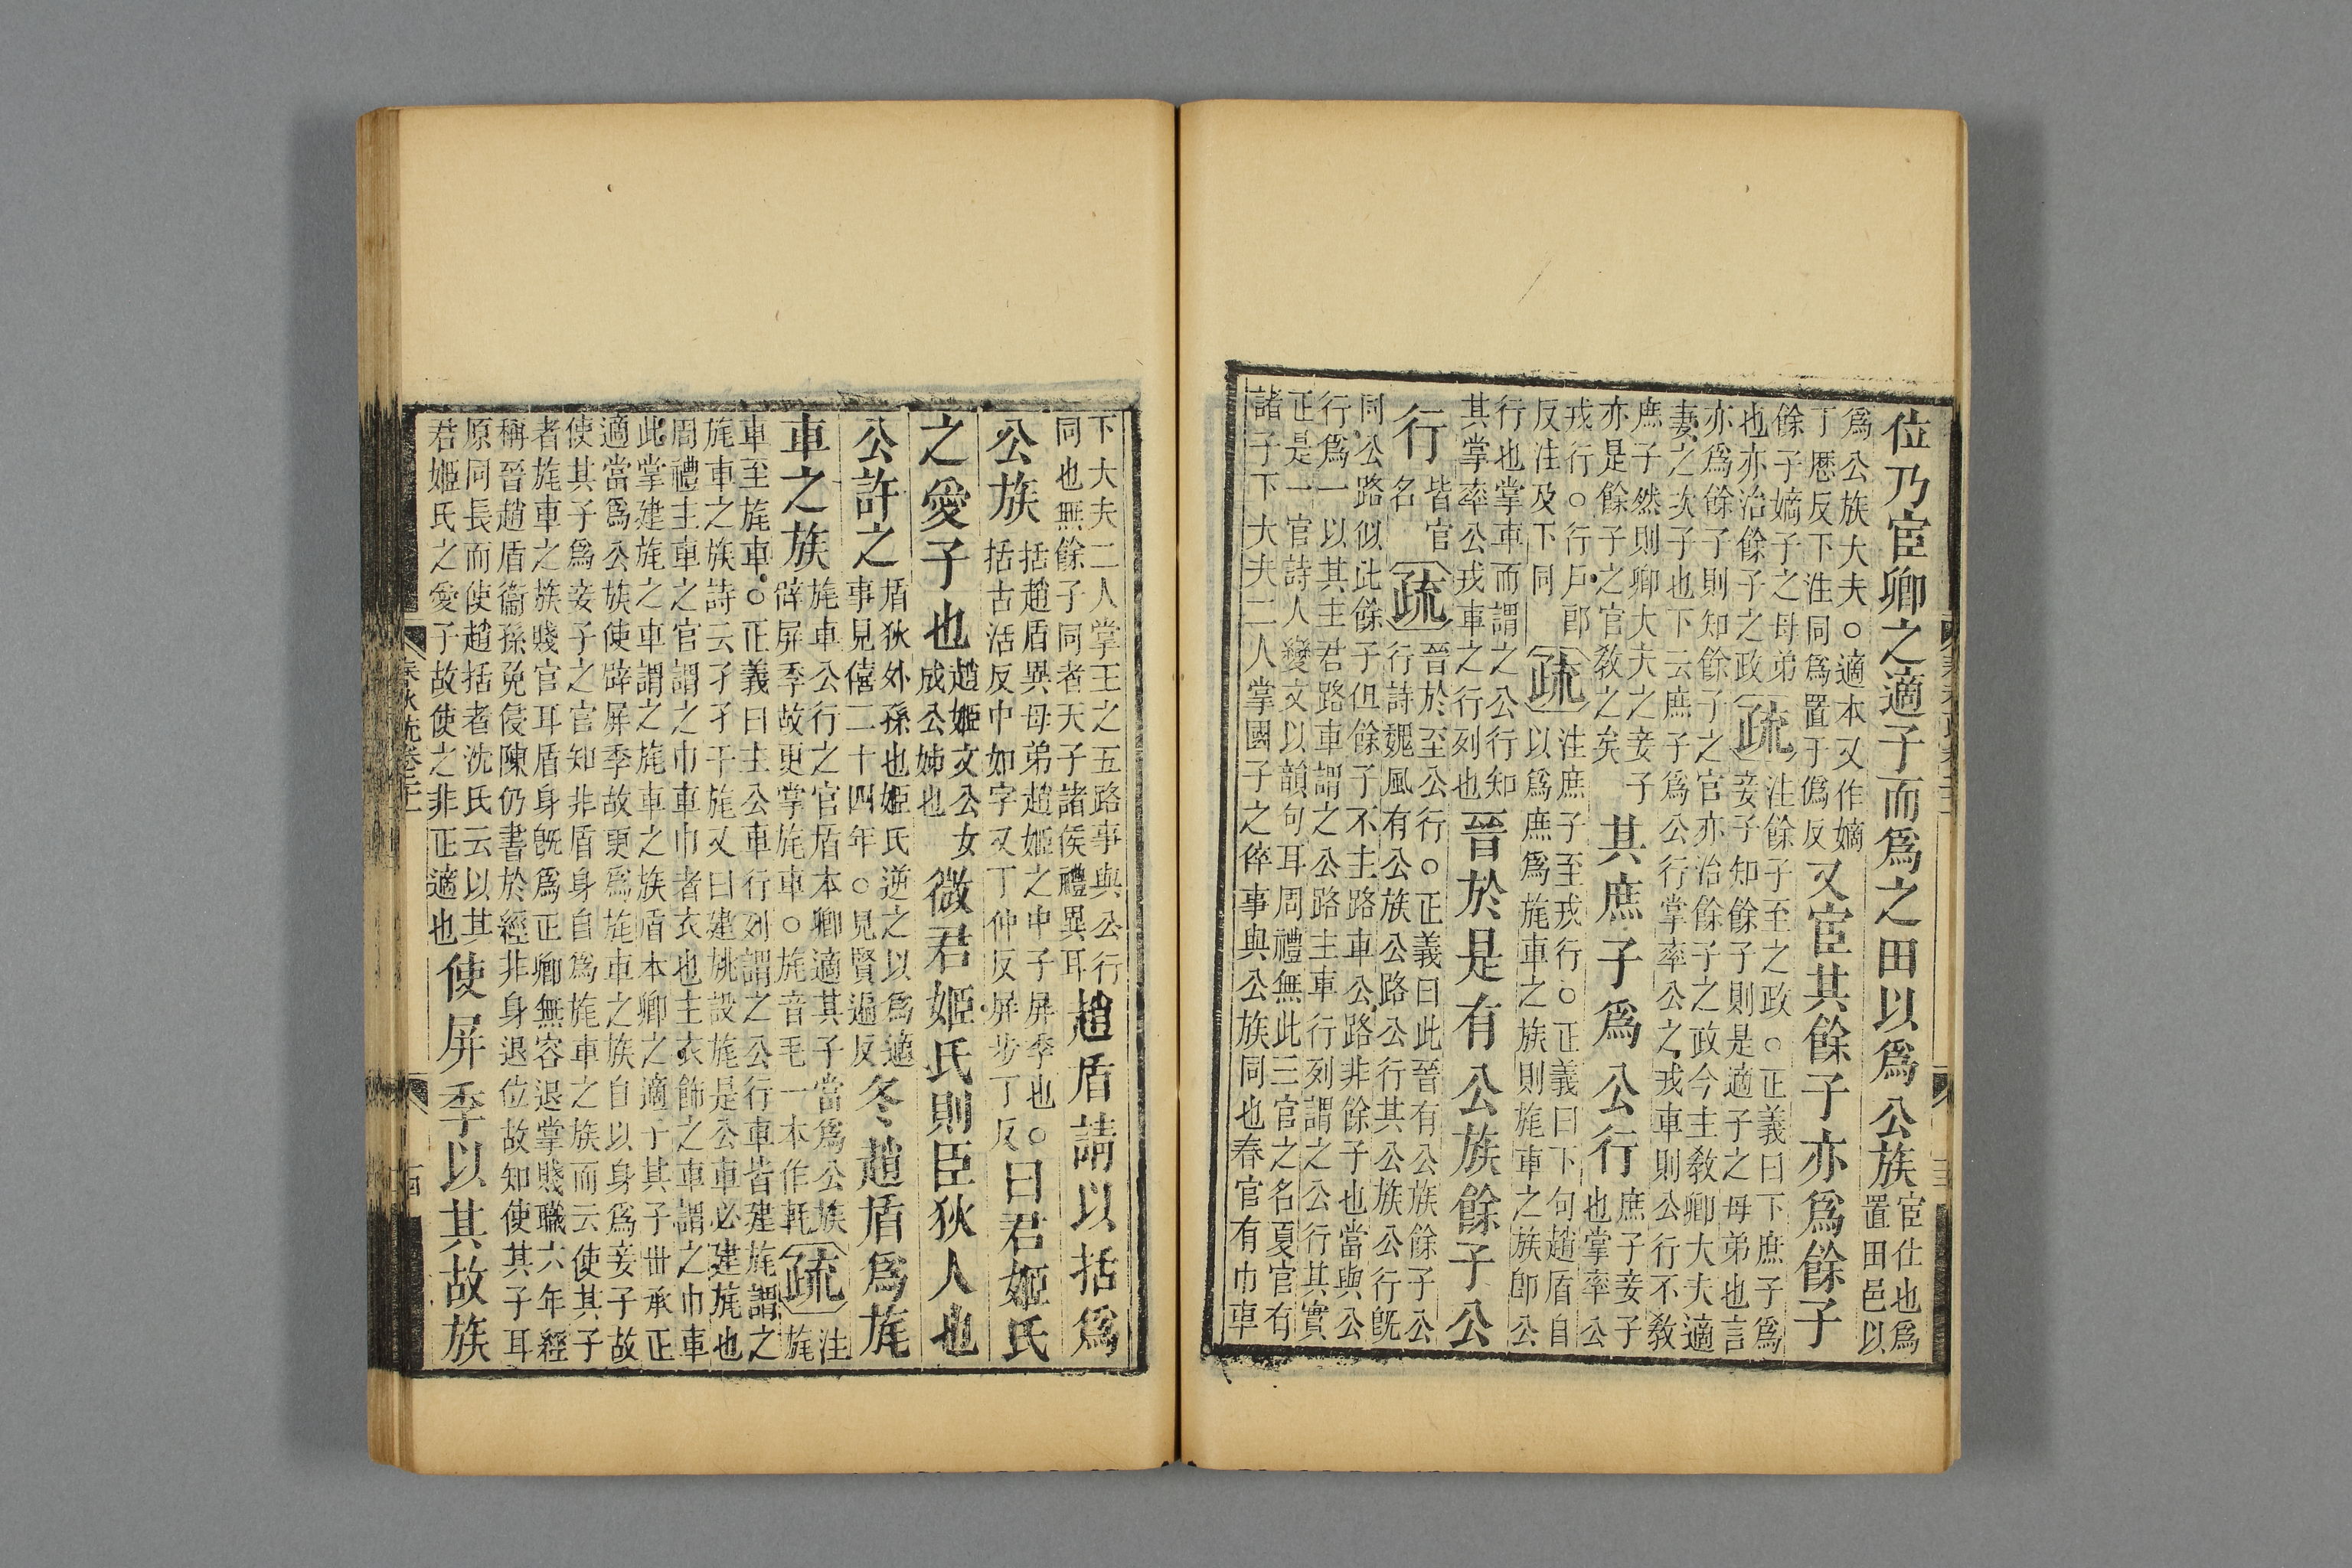 位乃宦卿之適子而爲之田以爲公族
宦仕也爲
置田邑以
爲公族大夫○適本又作嫡
丁歷反下注同爲置于僞反
又宦其餘子亦爲餘子
餘子嫡子之母弟
也亦治餘子之政
疏
注餘子至之政○正義曰下庶子爲
妾子知餘子則是適子之母弟也言
亦爲餘子則知餘子之官亦治餘子之政今主敎卿大夫適
妻之次子也下云庶子爲公行掌率公之戎車則公行不敎
庶子然則卿大夫之妾子
亦是餘子之官敎之矣
其庶子爲公行
庶子妾子
也掌率公
戎行○行戶郎
反注及下同
疏
注庶子至戎行○正義曰下句趙盾自
以爲庶爲旄車之族則旄車之族卽公
行也掌車而謂之公行知
其掌率公戎車之行列也
晉於是有公族餘子公
行
皆官
名
疏
晉於至公行○正義曰此晉有公族餘子公
行詩魏風有公族公路公行其公族公行旣
同公路似此餘子但餘子不主路車公路非餘子也當與公
行爲一以其主君路車謂之公路主車行列謂之公行其實
正是一官詩人變文以韻句耳周禮無此三官之名夏官有
諸子下大夫二人掌國子之倅事與公族同也春官有巾車
下大夫二人掌王之五路事與公行
同也無餘子同者天子諸侯禮異耳
趙盾請以括爲
公族
括趙盾異母弟趙姬之中子屏季也○
括古活反中如字又丁仲反屏步丁反
曰君姬氏
之愛子也
趙姬文公女
成公姊也
微君姬氏則臣狄人也
公許之
盾狄外孫也姬氏逆之以爲適
事見僖二十四年○見賢遍反
冬趙盾爲旄
車之族
旄車公行之官盾本卿適其子當爲公族
辟屏季故更掌旄車○旄音毛一本作軞
疏
注
旄
車至旄車○正義曰主公車行列謂之公行車皆建旄謂之
旄車之族詩云孑孑干旄又曰建旐設旄是公車必建旄也
周禮主車之官謂之巾車巾者衣也主衣飾之車謂之巾車
此掌建旄之車謂之旄車之族盾本卿之適子其子世承正
適當爲公族使辟屏季故更爲旄車之族自以身爲妾子故
使其子爲妾子之官知非盾身自爲旄車之族而云使其子
者旄車之族賤官耳盾身旣爲正卿無容退掌賤職六年經
稱晉趙盾衞孫免侵陳仍書於經非身退位故知使其子耳
原同長而使趙括者沈氏云以其
君姬氏之愛子故使之非正適也
使屏季以其故族